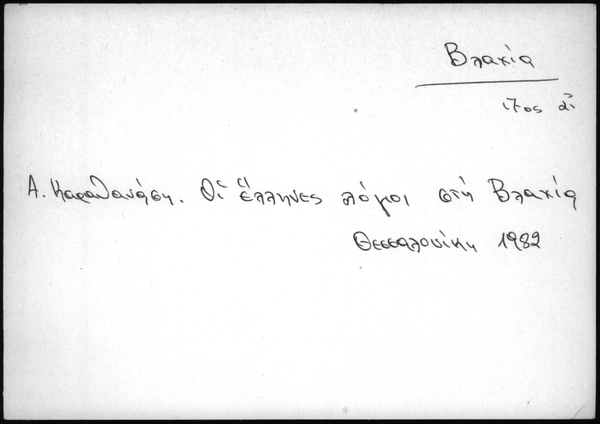 Βλαχία
17ος αἰ
Α. Καραθανάση. Οἱ Ἕλληνες λόγιοι στή Βλαχία
Θεσσαλονίκη 1982